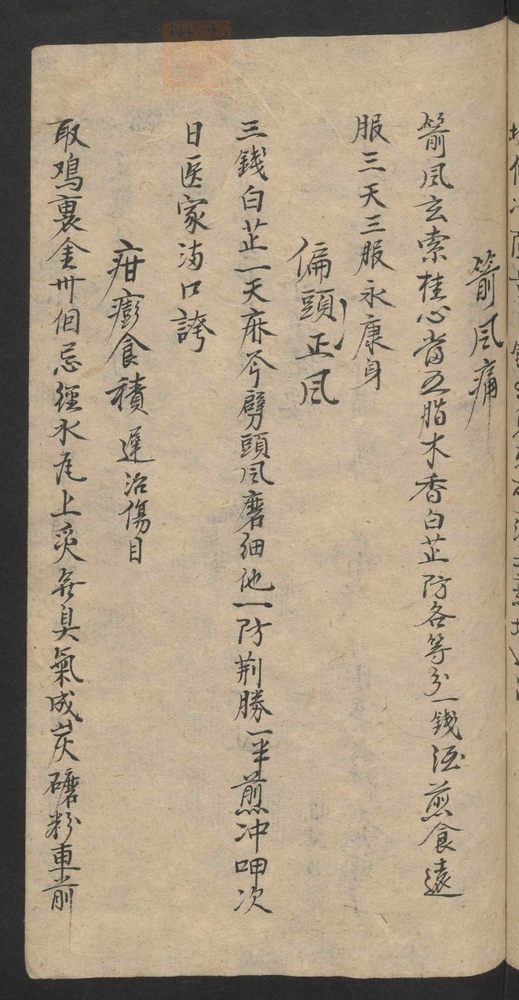 箭风痛
箭风玄索桂心当五脂木香白芷防各等分一錢酒煎食遠
服三天三服永康身
偏頭正风
三錢白芷一天麻芩劈頭风磨细他一防荆勝一半煎冲呷次
日医家满口誇
疳膨食積遲治傷目
取鸡裏金卅個忌經水瓦上炙無臭氣成炭礳粉車前